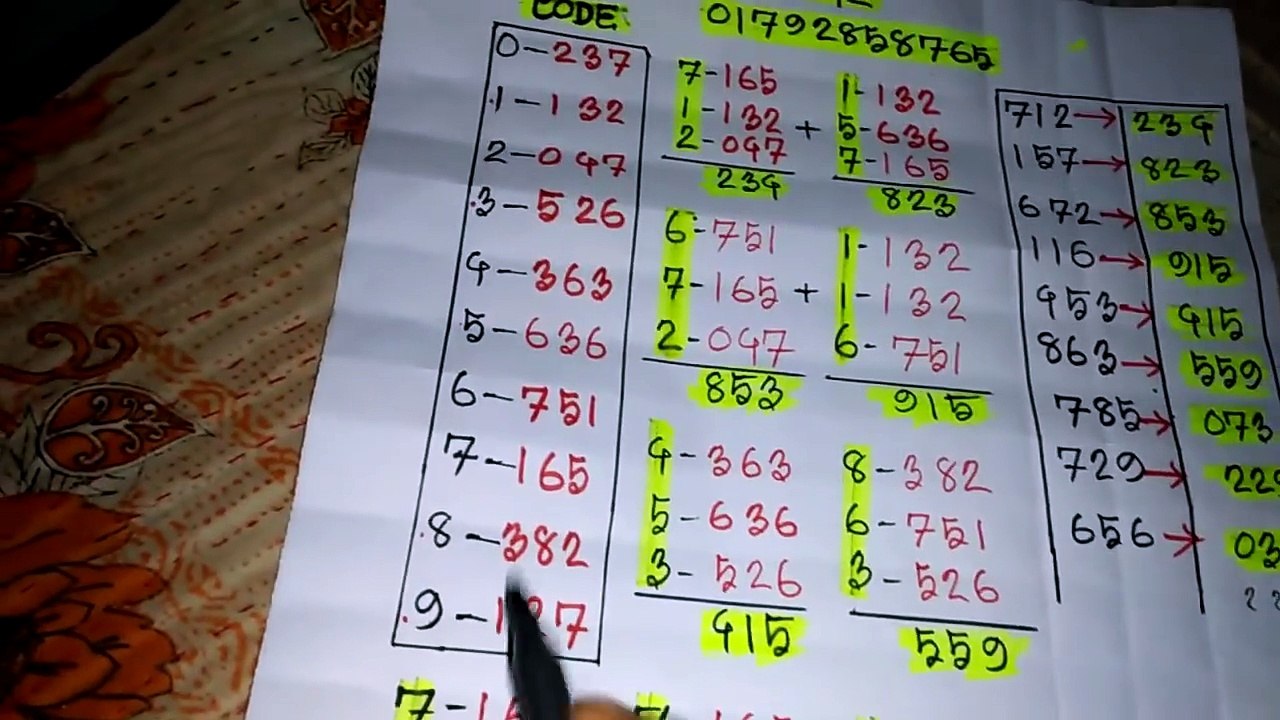 CODE
01792858765
0-237
1-132
2-047
3-526
4-363
5-636
6-751
7-165
8-382
7-165
1-132
2-047
234
+
1-132
5-636
7-165
823
6-751
7-165
2-047
853
+
1-132
1-132
6-751
915
4-363
5-636
3-526
415
8-382
6-751
3-526
559
712→234
157→823
672→853
116→915
453→415
863→559
785→073
729→
656→